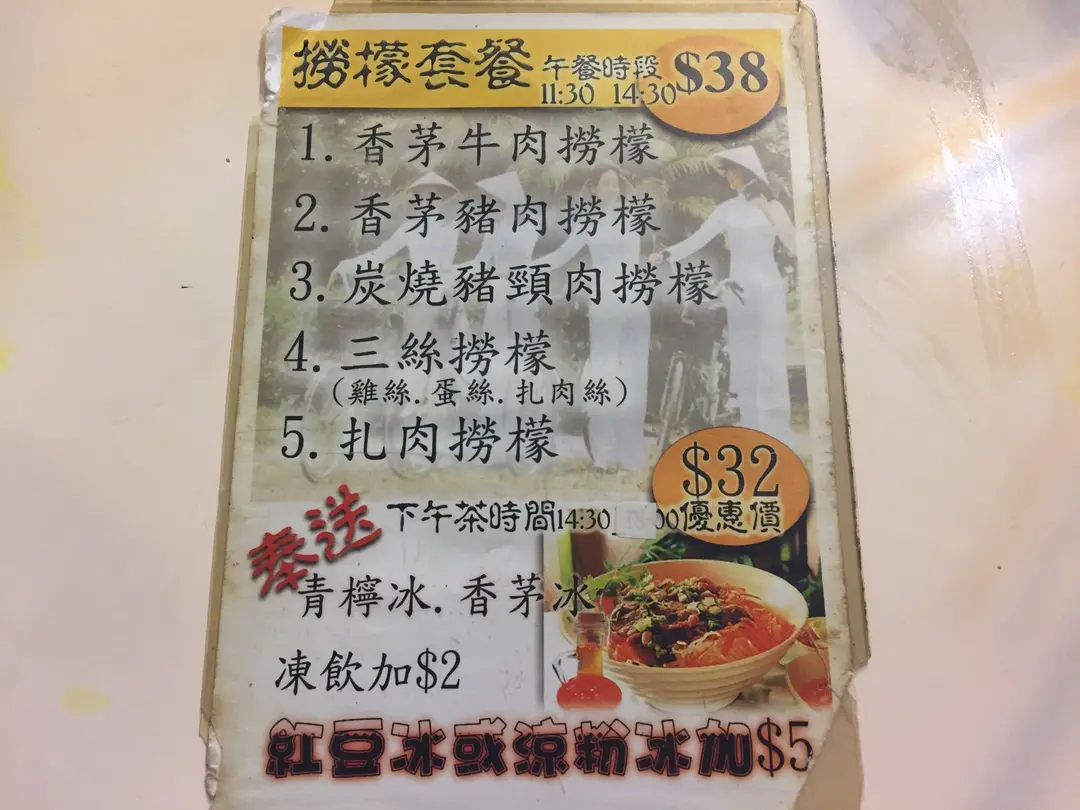 撈檬套餐 午餐時段 $38
11:30 14:30
1. 香茅牛肉撈檬
2. 香茅豬肉撈檬
3. 炭燒豬頸肉撈檬
4. 三絲撈檬
(雞絲.蛋絲.扎肉絲)
5. 扎肉撈檬
$32
奉送
下午茶時間14:30 18:00優惠價
青檸冰.香茅冰
凍飲加$2
紅豆冰或涼粉冰加$5